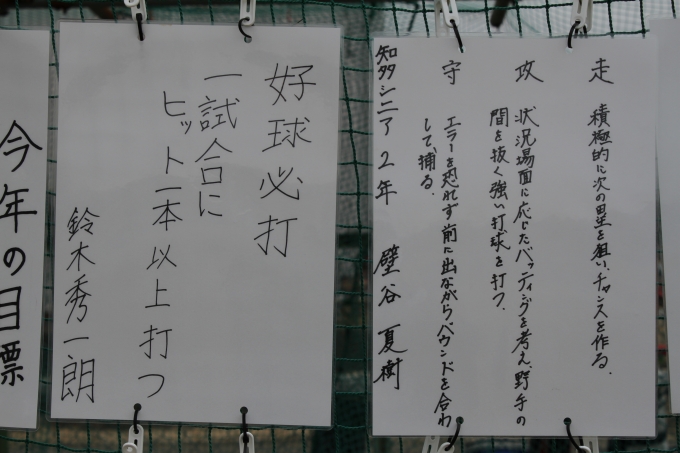 走　積極的に次の塁を狙い、チャンスを作る。
攻　状況場面に応じたバッティングを考え、野手の
間を抜く強い打球を打つ。
守　エラーを恐れず前に出ながらバウンドを合わ
して、捕る。
知多シニア 2年 壁谷 夏樹
好球必打
一試合に
ヒット一本以上打つ
鈴木秀一朗
今年の目標